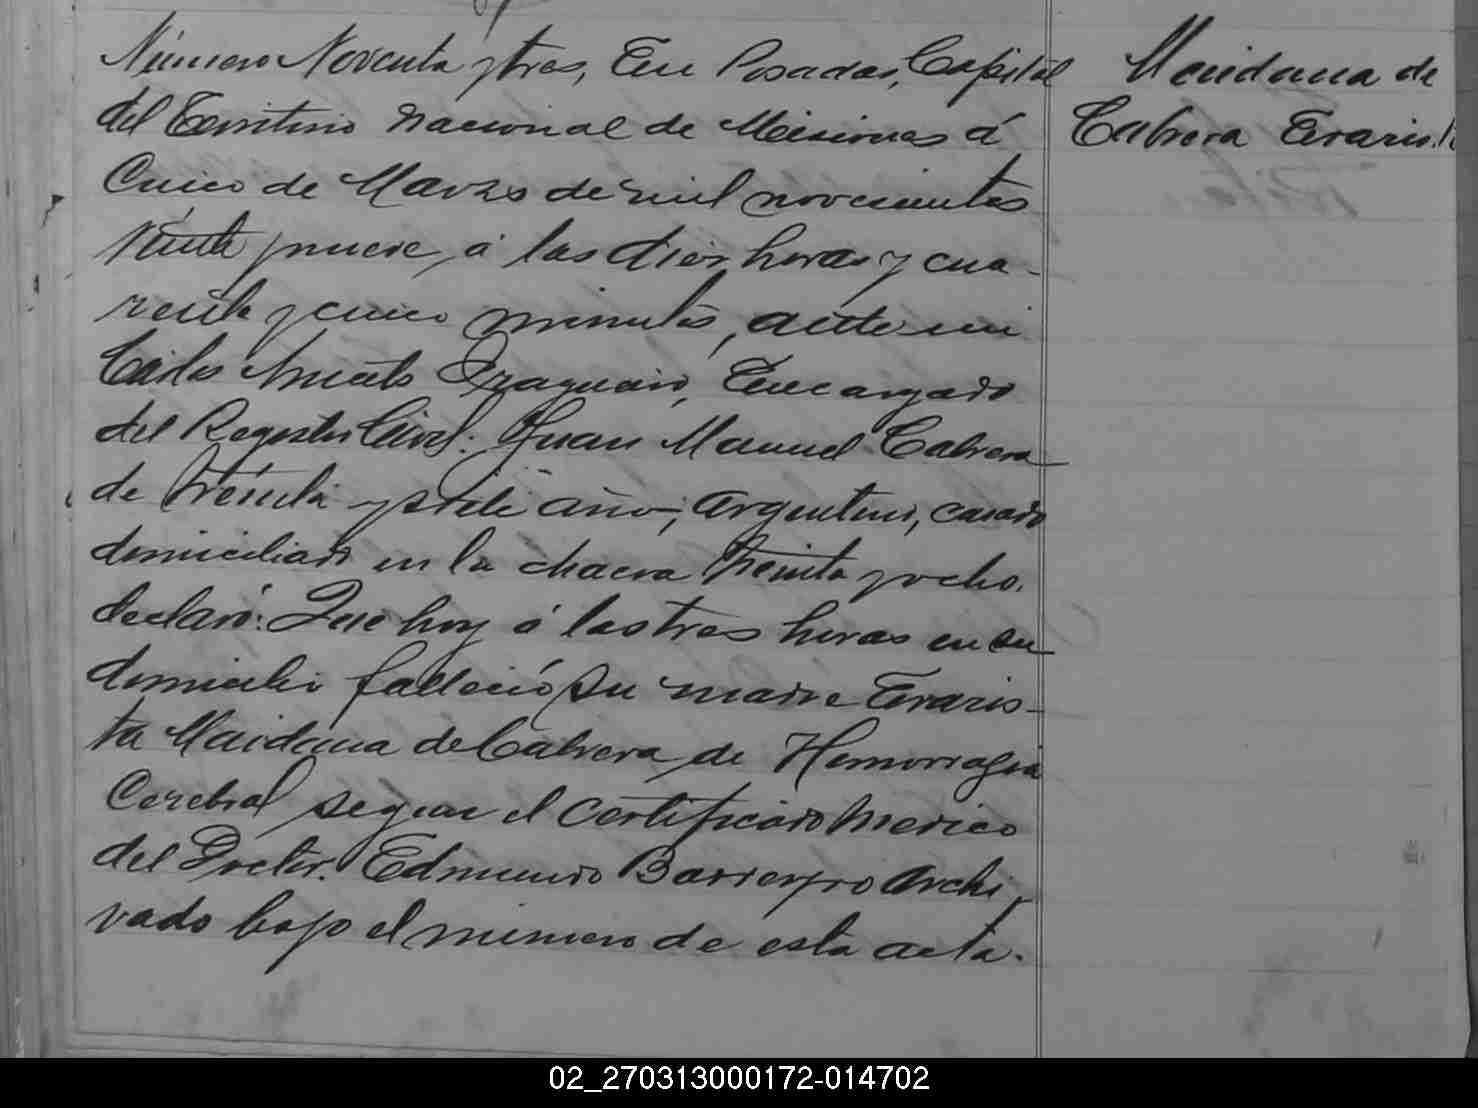 Número Noventa y tres, En Posadas, Capital
del Territorio Nacional de Misiones á
Cinco de Marzo de mil novecientos
veinte y nueve, á las diez horas y cua-
renta y cinco minutos, ante mi
Carlos Encargado
del Registro Civil: Juan Manuel Cabrera
de treinta y siete años, argentino, casado
domiciliado en la chacra treinta y ocho.
declaró: Que hoy á las tres horas en su
domicilio falleció su madre Evaris-
ta Maidana de Cabrera de Hemorragia
Cerebral segun el certificado medico
del Doctor. Edmundo Barreyro archi-
vado bajo el número de esta acta.
Maidana de
Cabrera Evarista
02_270313000172-014702